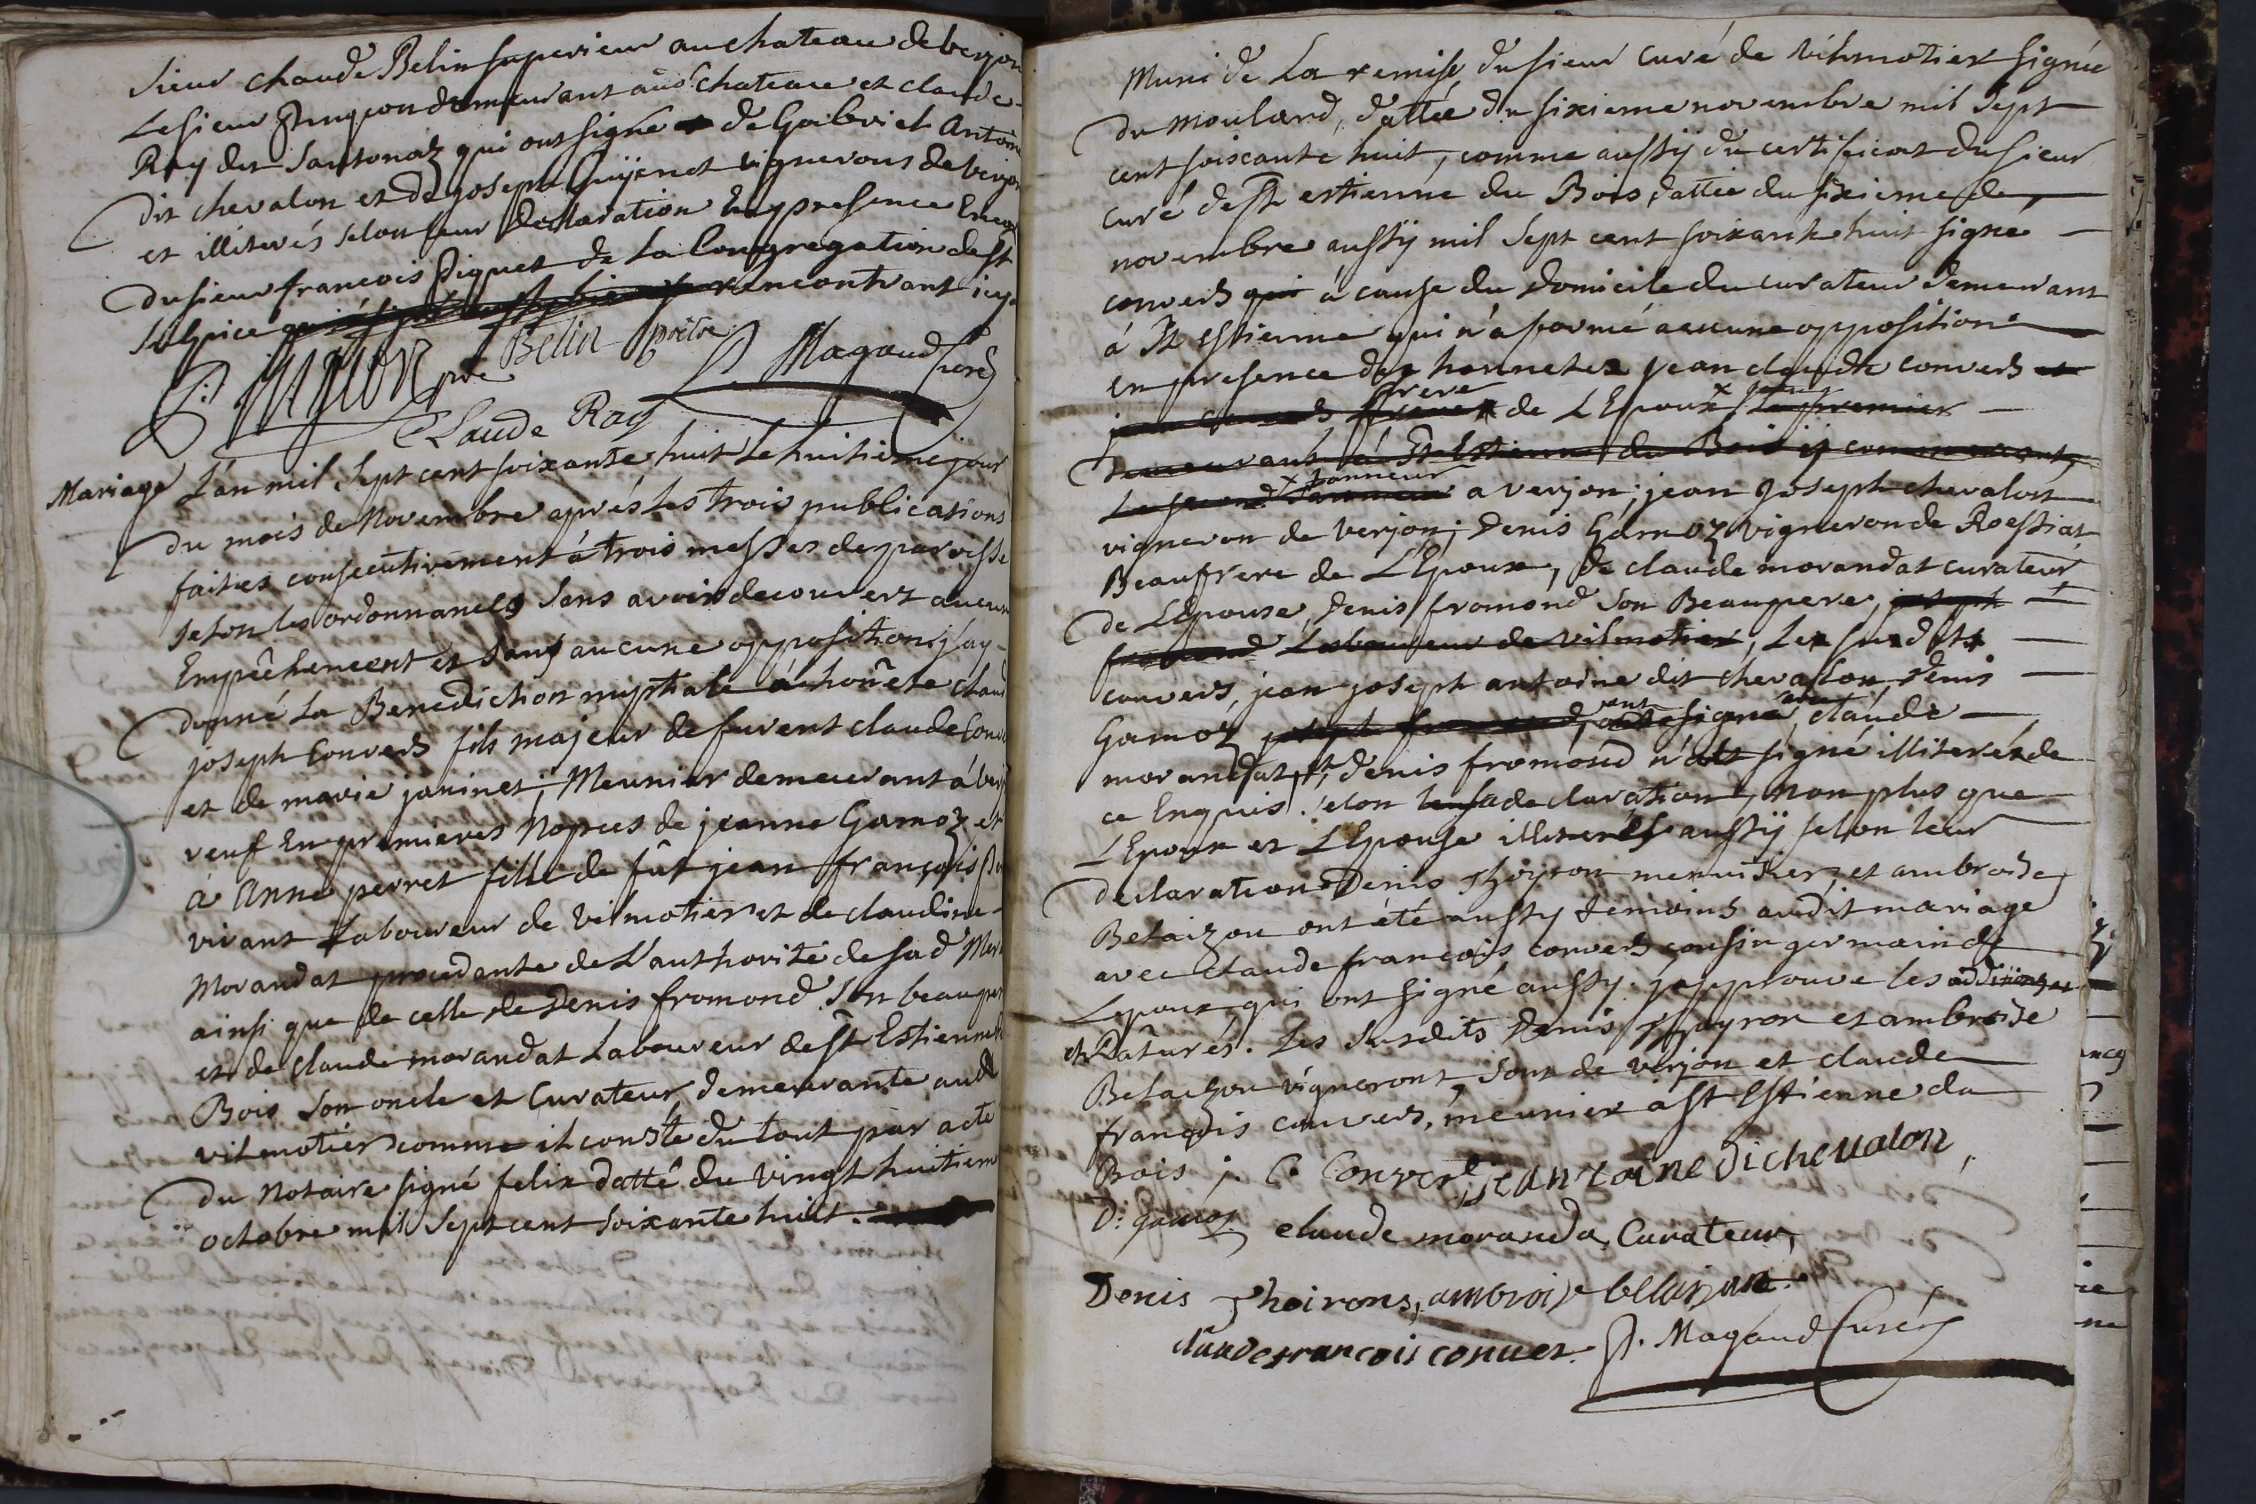 Sieur chaude Belin superieur au chateau de verjon
Le sieur Pingeon demeurant aud chateau et claude
Rey de Santonaz qui ont signé de Gabriel Antoine
dit chevalon et de joseph Guÿenet vignerons de verjon
et illiterés selon leur declaration En presence Encor
du sieur francois Piquet de la Congregation de st
Sulpice rencontrant icy
P. Pingeon pre Belin prêtre Magaud Curé
Claude Ray
Mariage L'an mil Sept cent soixante huit Le huitieme jour
du mois de Novembre aprés Les trois publications
faites consecutivement à trois messes de paroisse
selon les ordonnances Sans avoir decouvert aucun
Empêchement et sans aucune opposition j'ay
donné La Benediction nuptiale à honête Claud
joseph Convers fils majeur de furent claude Conve
et de marie janinet, Meunier demeurant à Verj
veuf En premieres Nopces de jeanne Gamoz et
à Anne perret fille de fût jean françois Pe
vivant Laboureur de Vilmotier et de claudine
Morandat procedante de L'authorité de sad Mere
ainsi que de celle de Denis fromond Son beaupere
et de claude morandat Laboureur de st Estienne d
Bois Son oncle et Curateur, demeurante aud
vilmotier comme il conste du tout par acte
du Notaire signé felix datté du vingt huitiem
octobre mil Sept cent Soixante huit.
Muni de La remise du sieur Curé de Vilmotier signée
du moulard, dattée du sixieme novembre mil Sept
cent soiscante huit, comme aussÿ du certificat du sieur
curé de st estienne du Bois dattée du sixieme de
novembre aussÿ mil Sept cent soixante huit signé
convers qui à cause du Domicile du curateur demeurant
à St Estienne qui n'a formé aucune opposition
en presence des honnetes jean claude convers et
frere de L'Epoux Le premier
demeurant à St Estienne du Bois
Le second × tonneur a verjon; jean Joseph chevalon
vigneron de verjon; Denis Gamoz vigneron de Roessiat
Beaufrere de L'Epoux, de claude morandat curateur
de L'Epouse, Denis fromond Son Beaupere, joseph
fromond Laboureur de vilmotier, Les susdits
convers, jean joseph antoine dit chevalon, Denis
Gamoz joseph fromond, ont signé avec claude
morandat, et denis fromond n'a signé illiteré de
ce Enquis selon sa declaration, non plus que
L'Epoux et L'Epouse illiterés aussÿ selon leur
declaration Denis choÿron menuisier, et ambroise
Belaizon ont été aussy temoins audit mariage
avec claude francois convers cousin germain de
Lepoux qui ont signé aussy. japprouve les additions
et Ratures. Les Susdits Denis Choyron et ambroise
Belaizon vignerons, Sont de verjon et claude
françois convers, meunier a st Estienne du
Bois j. C Convert, jeantoine dichevalon,
D: gamoz claude moranda, Curateur,
Denis choirons, ambroise belaizon.
claudefrancois conver. P. Magaud Curé